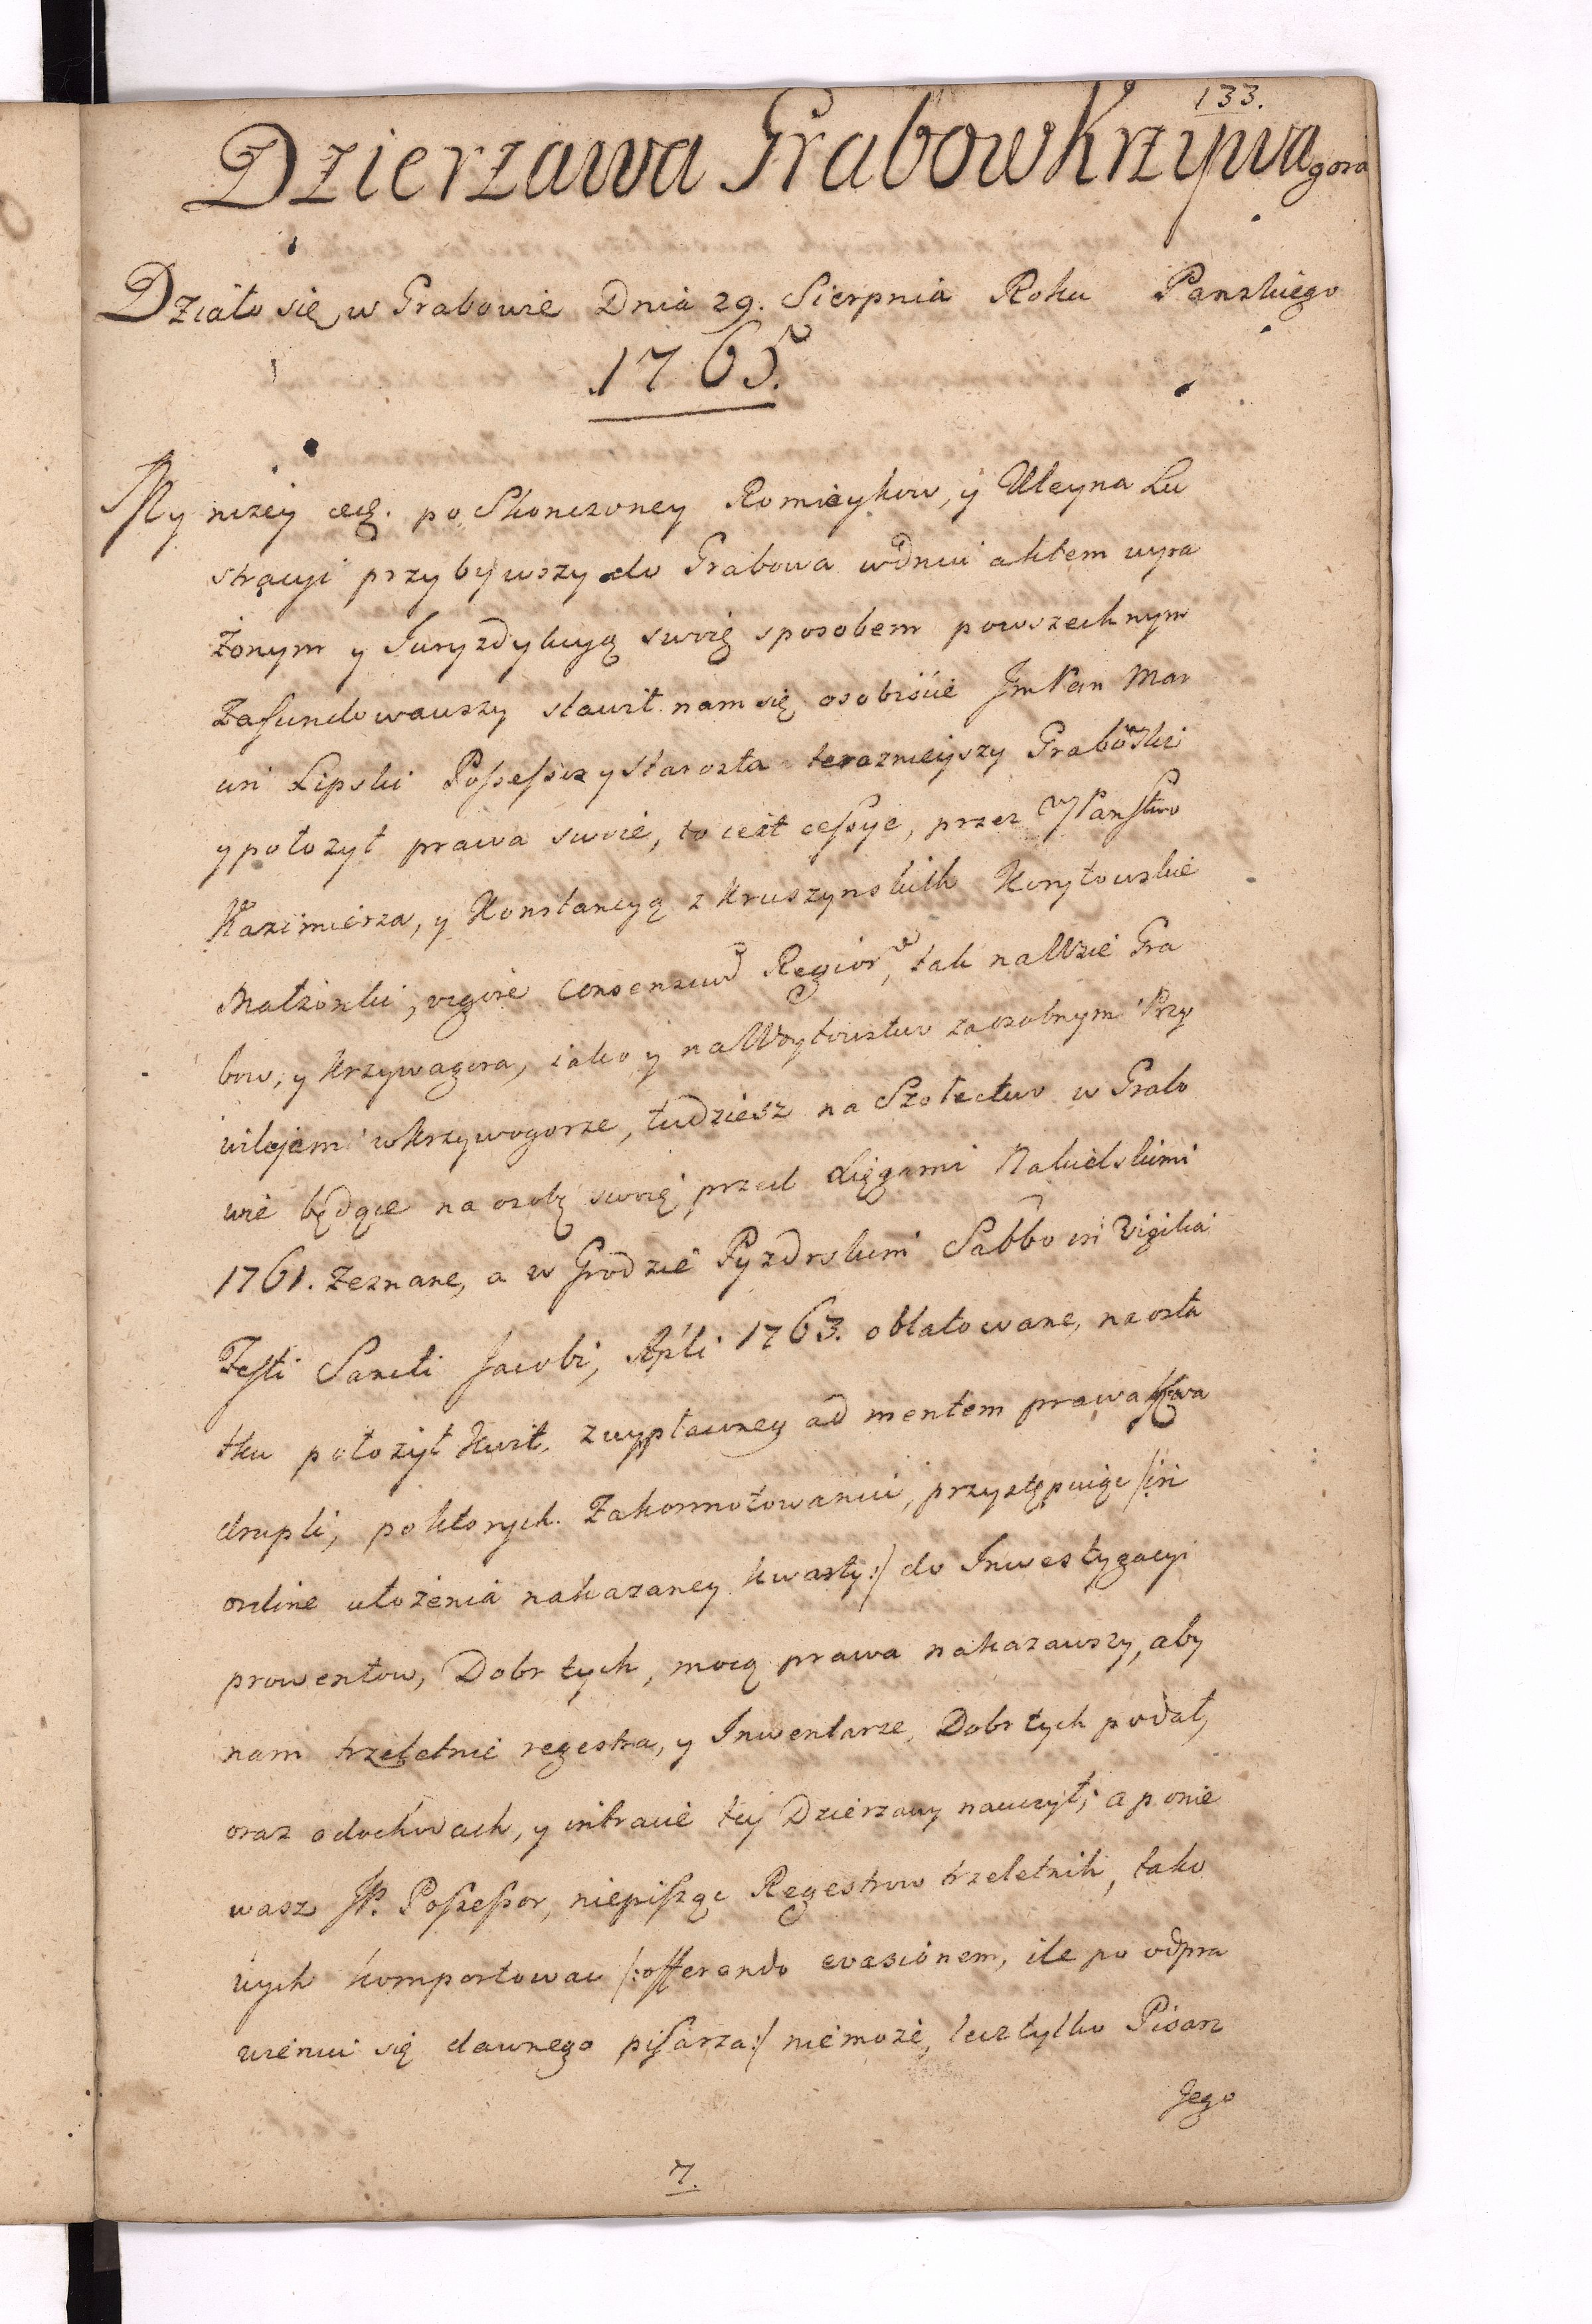 133.
Dzierzawa Grabow Krzywagora
Działo się w Grabowie Dnia 29. Sierpnia Roku Panskiego
1765.
My nizey etc. po Skonczoney Romieykow, y Uleyna Lu
stracyi przybywszy do Grabowa w Dniu aktem wyra
żonym y Juryzdykcyą swoię sposobem powszechnym
Zafundowawszy stawił nam się osobiście Jm Pan Mar
cin Lipski Possessor y Starosta terazniejszy Grabowski
y położył prawa swoie, to iest cessye, przez Państwo
Kazimierza, y Konstancyą z Kruszynskich Korytowskie
Małżonki, vigore consensus Regior, tak na Wsie Gra
bow, y Krzywagora, iako y na Woytowstwo za osobnym Przy
wilejem w Krzywogorze, tudziesz na Szołectwo w Grabo
wie będące na osobę swoię przed Xięgami Nakielskimi
1761. Zeznane, a w Grodzie Pyzdrskim Sabbo in Vigilia
Festi Sancti Jacobi, Apli 1763. oblatowane, na osta
tku położył Kwit, z wypławney ad mentem prawa Kwa
drupli, po ktorych Zakonnotowaniu, przystępuiąc /: in
ordine ułożenia nakazaney kwarty :/ do Inwestygacyi
prowentow, Dobr tych, mocą prawa nakazawszy, aby
nam trzeletnie regestra, y Inwentarze, Dobr tych podał,
oraz o dochodach, y intracie tey Dzierzawy nauczył; a ponie
wasz JP. Possessor, niepisząc Regestrow trzeletnich, tako
wych komportowac /: offerendo evasionem, ile po odpra
wieniu się dawnego pisarza :/ niemoże, lecz tylko Pisarz
Jego
7.